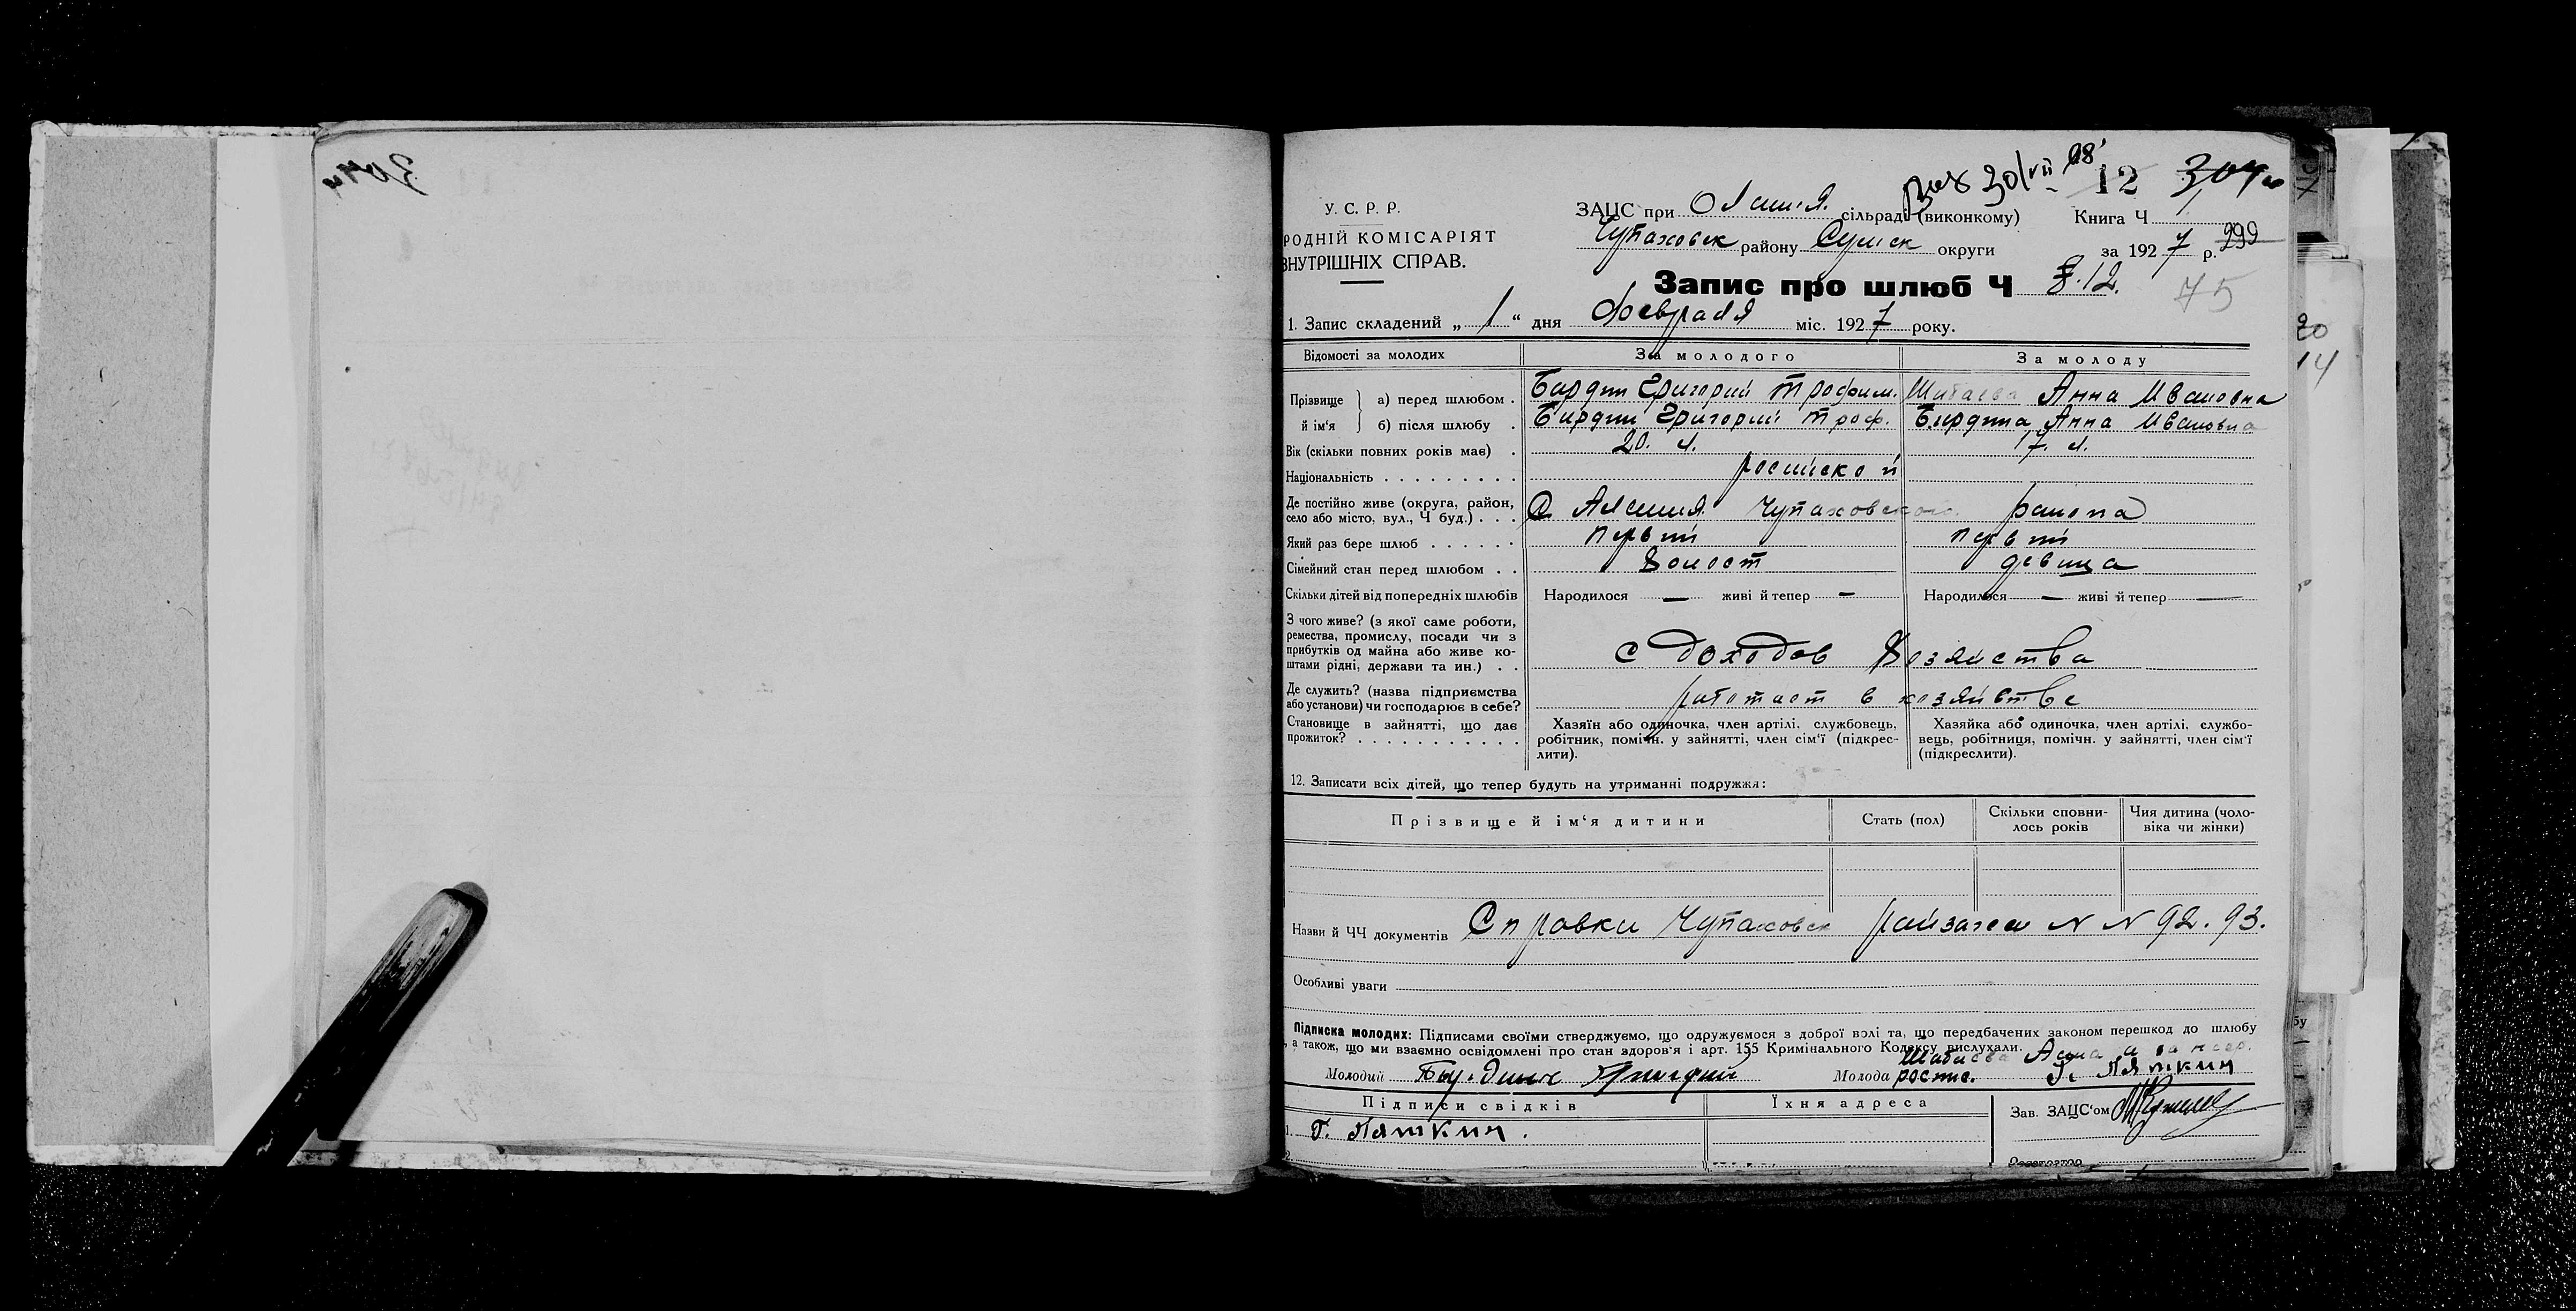 12
У. С. Р. Р.
РОДНІЙ КОМІСАРІЯТ
ВНУТРІШНІХ СПРАВ.
ЗАЦС при Олешня. сільраді (виконкому) Книга Ч
Чупаховск району Сумск округи за 1927 р. 299
Запис про шлюб Ч 12.
75
1. Запис складений „ 1 “ дня Февраля міс. 1927 року.
Відомості за молодих За молодого За молоду
Прізвище й ім‘я а) перед шлюбом . Григорий Трофим. Анна Ивановна
б) після шлюбу . Григорий Троф. Анна Ивановна
Вік (скільки повних років має) . 20. л. 17. л.
Національність . . . . . . . . . росийской
Де постійно живе (округа, район, село або місто, вул., Ч буд.) . . . С Алешня Чупаховского района
Який раз бере шлюб . . . . . . первий первий
Сімейний стан перед шлюбом . . Холост девица
Скільки дітей від попередніх шлюбів Народилося — живі й тепер — Народилося — живі й тепер —
З чого живе? (з якої саме роботи,
ремества, промислу, посади чи з
прибутків од майна або живе ко-
штами рідні, держави та ин.) . . с доходов Хозяйства
Де служить? (назва підприємства
або установи) чи господарює в себе? работает в хозяйстве
Становище в зайнятті, що дає
прожиток? . . . . . . . . . . .
Хазяїн або одиночка, член артілі, службовець,
робітник, помічн. у зайнятті, член сім‘ї (підкрес-
лити).
Хазяйка або одиночка, член артілі, службо-
вець, робітниця, помічн. у зайнятті, член сім‘ї
(підкреслити).
12. Записати всіх дітей, що тепер будуть на утриманні подружжя:
Прізвище й ім‘я дитини Стать (пол) Скільки сповни-
лось років Чия дитина (чоло-
віка чи жінки)
Назви й ЧЧ документів Справки Чупаховск райзагса N N 92. 93.
Особливі уваги
Підписка молодих: Підписами своїми стверджуємо, що одружуємося з доброї волі та, що передбачених законом перешкод до шлюбу
, а також, що ми взаємно освідомлені про стан здоров‘я і арт. 155 Кримінального Кодексу вислухали.
Молодий Молода роспис. Г. Пяткин
Підписи свідків Їхня адреса Зав. ЗАЦС‘ом
1. Г. Пяткин.
2.
Реєстратор
20
14